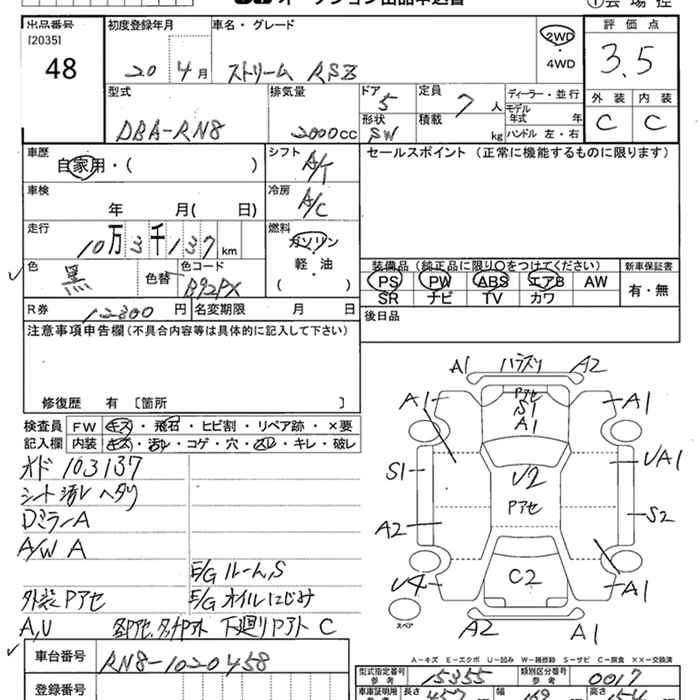 オークション出品申込書
① 会 場 控
出品番号 初度登録年月 車名・グレード 評 価 点
[2035]
48 20 4 月 ストリーム RSZ 2WD ・ 4WD 3.5
型式 排気量 ドア 定員 ディーラー・並行 外 装 内 装
DBA-RN8 2000 cc 5 7 人 モデル年式 年 C C
形状 積載
SW kg ハンドル 左・右
車歴 シフト セールスポイント (正常に機能するものに限ります)
自家用・( ) A/T
車検 冷房
年 月( 日) A/C
走行 燃料
10 万 3 千 137 km ガソリン
軽・油
( )
色 色替 色コード 装備品 (純正品に限り○をつけてください) 新車保証書
黒 B92PX PS PW ABS エアB AW 有・無
SR ナビ TV カワ
R券 12800 円 名変期限 月 日 後日品
注意事項申告欄 (不具合内容等は具体的に記入して下さい)
修復歴 有 〔箇所 〕
検査員 FW キズ・飛石・ヒビ割・リペア跡・×要
記入欄 内装 キズ・汚レ・コゲ・穴・スレ・キレ・破レ
オド 103137
シート汚レ ヘタリ
DミラーA
A/W A
E/G ルーム,S
外装 Pアセ E/G オイルにじみ
A,U 下廻り C
A1 A2
A1 Pアセ S1 A1 A1
S1 U2 UA1
Pアセ
A2 S2
U4 C2 A1
スペア
A2 A1
A-キズ E-エクボ U-凹み W-補修跡 S-サビ C-腐食 XX-交換済
車台番号 RN8-1020458
型式指定番号 参考 15355 類別区分番号 参考 0017
登録番号
車庫証明用 参考 長さ 457 幅 169 高さ 154